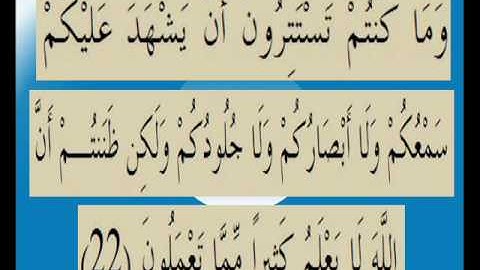 وَمَا كُنتُمْ تَسْتَتِرُونَ أَن يَشْهَدَ عَلَيْكُمْ
سَمْعُكُمْ وَلَا أَبْصَارُكُمْ وَلَا جُلُودُكُمْ وَلَكِن ظَنَنتُمْ أَنَّ
اللَّهَ لَا يَعْلَمُ كَثِيراً مِّمَّا تَعْمَلُونَ (22)